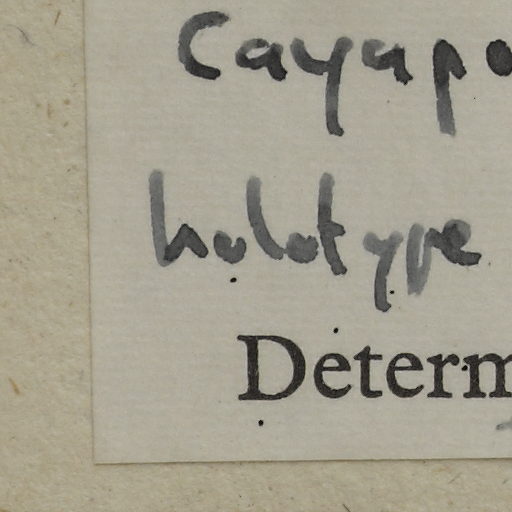 Cayapo
holotype
Determ